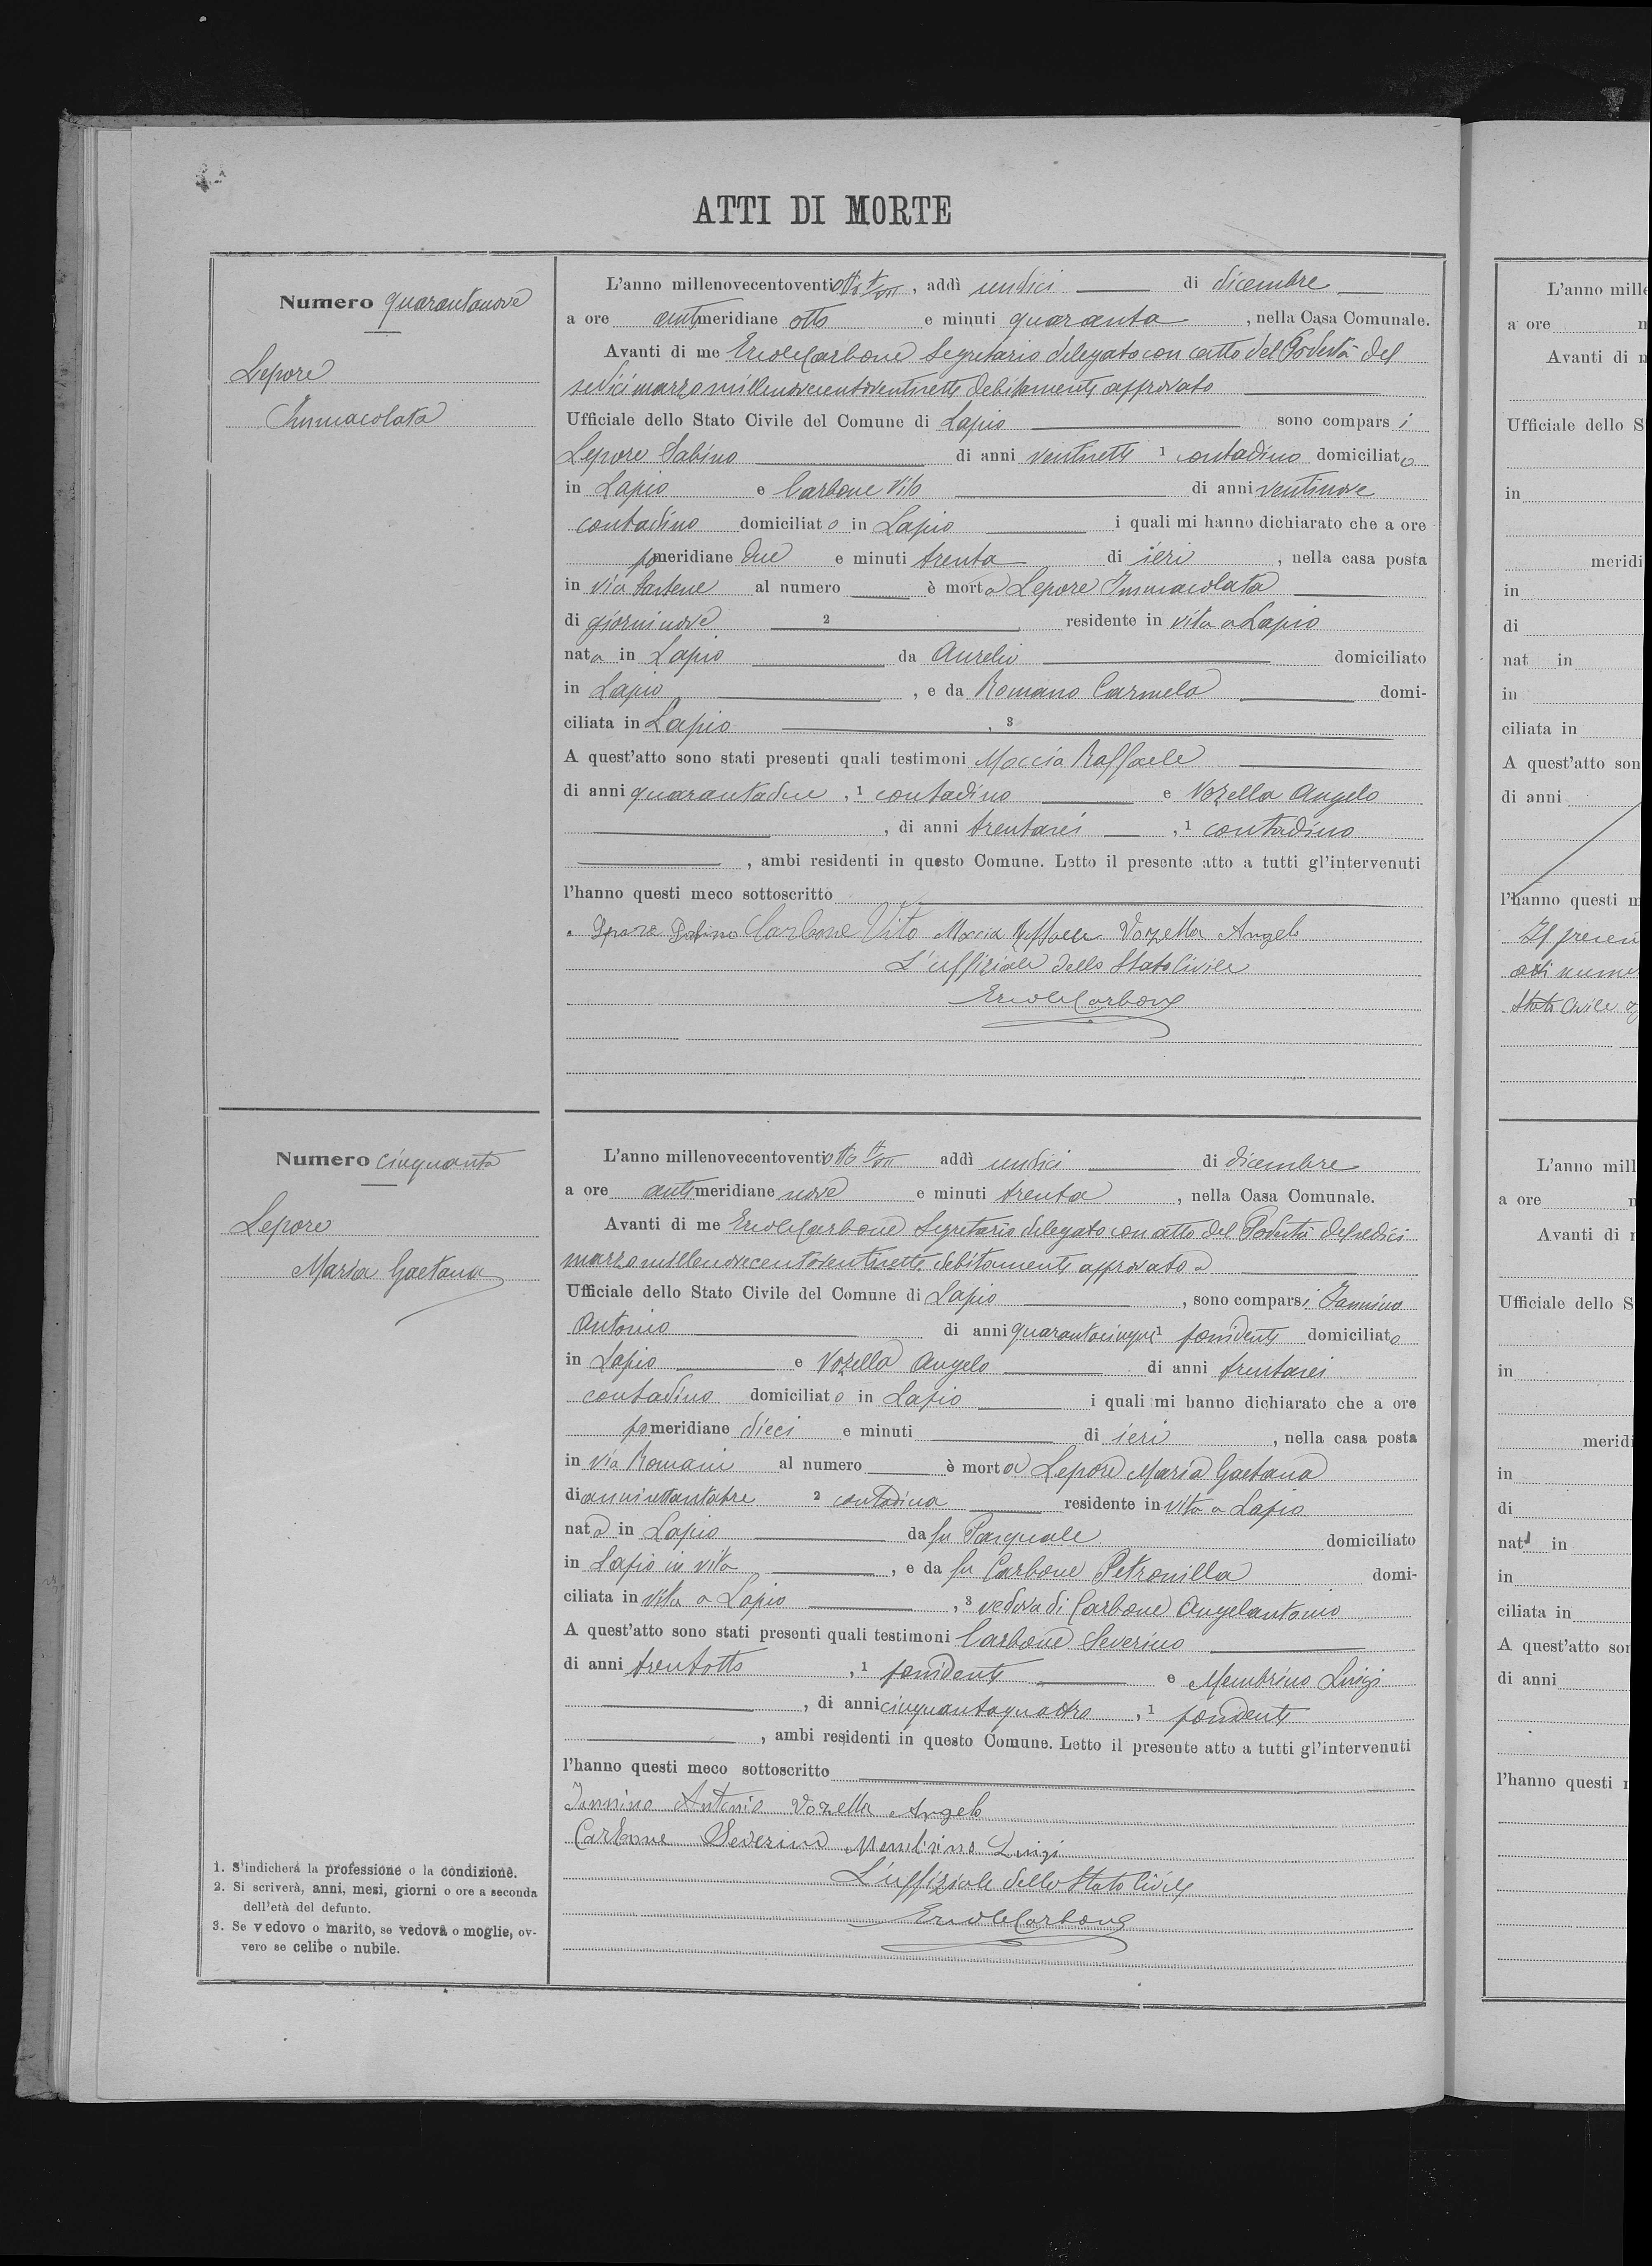 ATTI DI MORTE
Numero quarantanove
Lepore
Immacolata
L'anno millenovecentoventiotto VII, addì undici di dicembre
a ore antimeridiane otto e minuti quaranta, nella Casa Comunale.
Avanti di me Ercole Carbone Segretario delegato con atto del Podestà del
sedici marzo millenovecentoventisette debitamente approvato
Ufficiale dello Stato Civile del Comune di Lapio sono comparsi
Lepore Sabino di anni ventisette 1 contadino domiciliato
in Lapio e Carbone Vito di anni ventinove
contadino domiciliato in Lapio i quali mi hanno dichiarato che a ore
pomeridiane due e minuti trenta di ieri, nella casa posta
in via al numero è morta Lepore Immacolata
di giorni nove 2 residente in vita a Lapio
nata in Lapio da Aurelio domiciliato
in Lapio, e da Romano Carmela domi-
ciliata in Lapio, 3
A quest'atto sono stati presenti quali testimoni Moccia Raffaele
di anni quarantadue, 1 contadino e Vozella Angelo
, di anni trentasei, 1 contadino
, ambi residenti in questo Comune. Letto il presente atto a tutti gl'intervenuti
l'hanno questi meco sottoscritto
Lepore Sabino Carbone Vito Moccia Raffaele Vozella Angelo
L'uffiziale dello Stato Civile
Ercole Carbone
Numero cinquanta
Lepore
Maria Gaetana
L'anno millenovecentoventiotto VII addì undici di dicembre
a ore antimeridiane nove e minuti trenta, nella Casa Comunale.
Avanti di me Ercole Carbone Segretario delegato con atto del Podestà del sedici
marzo millenovecentoventisette debitamente approvato
Ufficiale dello Stato Civile del Comune di Lapio, sono comparsi Iannino
Antonio di anni quarantacinque 1 possidente domiciliato
in Lapio e Vozella Angelo di anni trentasei
contadino domiciliato in Lapio i quali mi hanno dichiarato che a ore
pomeridiane dieci e minuti di ieri, nella casa posta
in via Romani al numero è morta Lepore Maria Gaetana
di anni settantatre 2 contadina residente in vita a Lapio
nata in Lapio da fu Pasquale domiciliato
in Lapio in vita, e da fu Carbone Petronilla domi-
ciliata in vita a Lapio, 3 vedova di Carbone Angelantonio
A quest'atto sono stati presenti quali testimoni Carbone Severino
di anni trentotto, 1 possidente e Membrino Luigi
, di anni cinquantaquattro, 1 possidente
, ambi residenti in questo Comune. Letto il presente atto a tutti gl'intervenuti
l'hanno questi meco sottoscritto
Iannino Antonio Vozella Angelo
Carbone Severino Membrino Luigi
L'uffiziale dello Stato Civile
Ercole Carbone
1. S'indicherà la professione o la condizione.
2. Si scriverà, anni, mesi, giorni o ore a seconda
dell'età del defunto.
3. Se vedovo o marito, se vedova o moglie, ov-
vero se celibe o nubile.
L'anno mille
a ore
Avanti di
Ufficiale dello S
in
meridi
in
di
nat in
in
ciliata in
A quest'atto son
di anni
l'hanno questi m
Il presen
atti nume
Stato Civile
L'anno mill
a ore
Avanti di
Ufficiale dello S
in
meridi
in
di
nat in
in
ciliata in
A quest'atto sor
di anni
l'hanno questi